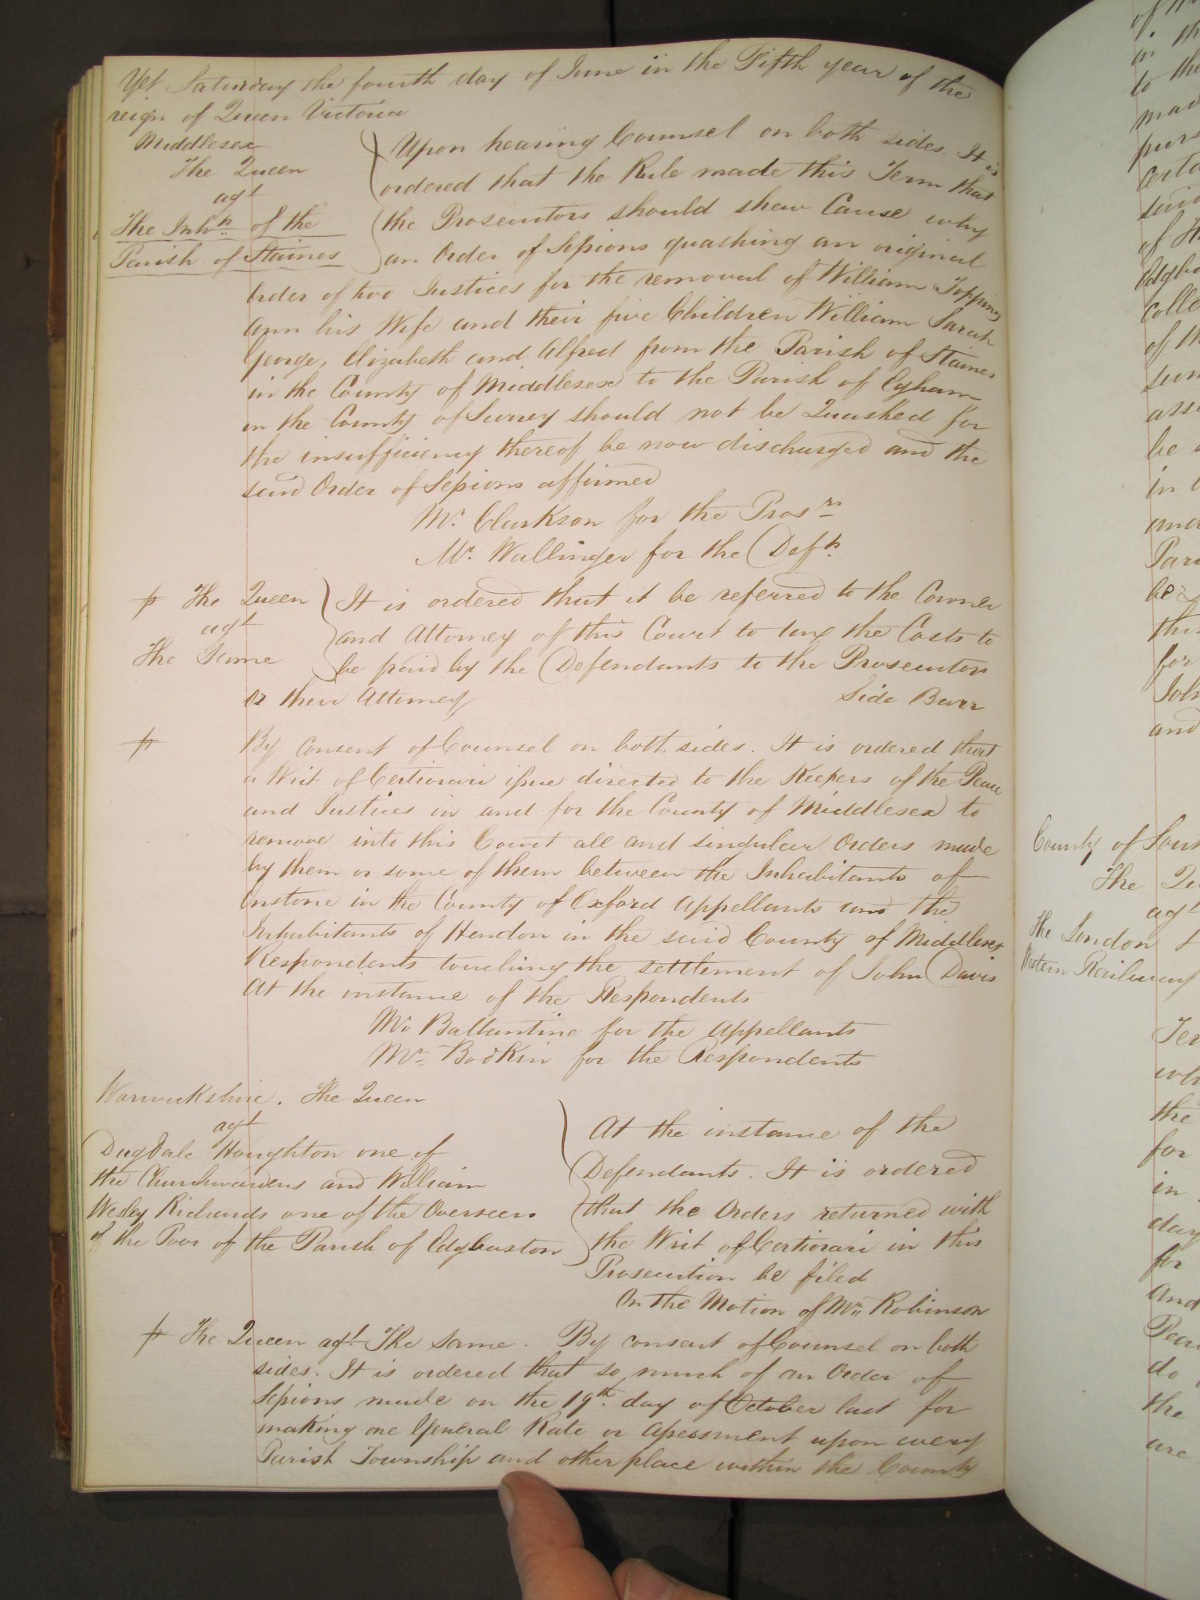 Yet Saturday the fourth day of June in the Fifth year of the
reign of Queen Victoria
Middlesex
The Queen
agt
The Inhts of the
Parish of Staines
Upon hearing Counsel on both sides. It is
ordered that the Rule made this Term that
the Prosecutors should shew Cause why
an Order of Sessions quashing an original
Order of two Justices for the removal of William Topping
Ann his Wife and their five Children William Sarah
George, Elizabeth and Alfred from the Parish of Staines
in the County of Middlesex to the Parish of Egham
in the County of Surrey should not be Quashed for
the insufficiency thereof be now discharged and the
said Order of Sessions affirmed
Mr. Clarkson for the Prosrs
Mr. Wallinger for the Defts
p The Queen
agt
The Same
It is ordered that it be referred to the Coroner
and Attorney of this Court to tax the Costs to
be paid by the Defendants to the Prosecutors
or their Attorney
Side Barr
p
By Consent of Counsel on both sides. It is ordered that
a Writ of Certiorari issue directed to the Keepers of the Peace
and Justices in and for the County of Middlesex to
remove into this Court all and singular Orders made
by them or some of them between the Inhabitants of
Enstone in the County of Oxford Appellants and the
Inhabitants of Hendon in the said County of Middlesex
Respondents touching the settlement of John Davis
At the instance of the Respondents
Mr. Ballantine for the Appellants
Mr. Bodkin for the Respondents
Warwickshire. The Queen
agt
Dugdale Houghton one of
the Churchwardens and William
Wesley Richards one of the Overseers
of the Poor of the Parish of Edgbaston
At the instance of the
Defendants. It is ordered
that the Orders returned with
the Writ of Certiorari in this
Prosecution be filed
On the Motion of Mr. Robinson
p The Queen agt The Same. By consent of Counsel on both
sides. It is ordered that so much of an Order of
Sessions made on the 19th. day of October last for
making one General Rate or Assessment upon every
Parish Township and other place within the County
County of
The
agt
The London
Western Railway